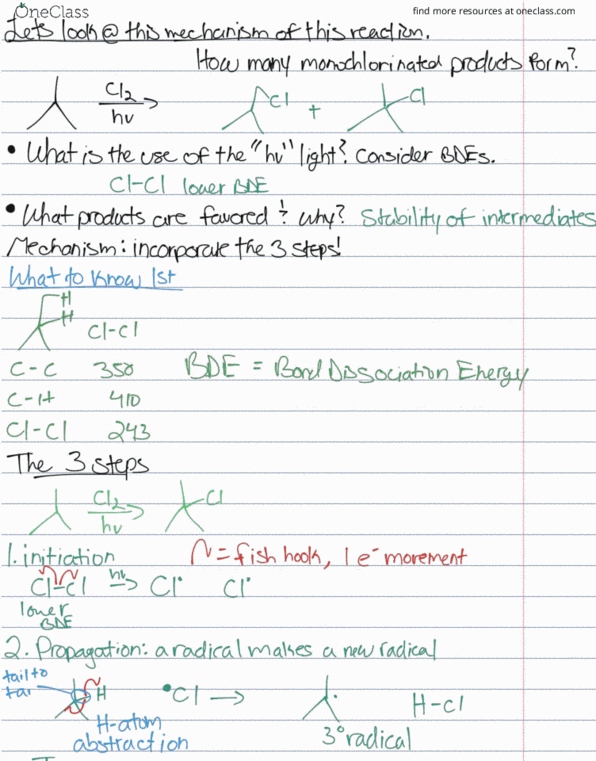 OneClass
find more resources at oneclass.com
Lets look @ this mechanism of this reaction.
How many monochlorinated products form?
Cl2
hv
Cl
+
Cl
• What is the use of the "hv" light? Consider BDEs.
Cl-Cl lower BDE
• What products are favored & why? Stability of intermediates
Mechanism: incorporate the 3 steps!
What to know 1st
H
H
Cl-Cl
C-C 350 BDE = Bond Dissociation Energy
C-H 410
Cl-Cl 243
The 3 steps
Cl2
hv
Cl
1. initiation = fish hook, 1 e- movement
Cl-Cl hv Cl• Cl•
lower
BDE
2. Propagation: a radical makes a new radical
tail to
tail
H •Cl → H-Cl
H-atom
abstraction
3° radical